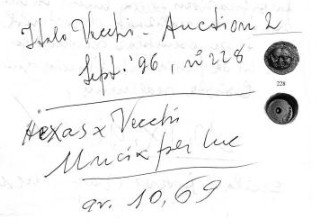 Italo Vecchi - Auction 2
Sept. '96, n° 228
228
Hexas x Vecchi
Uncia per me
gr. 10,69